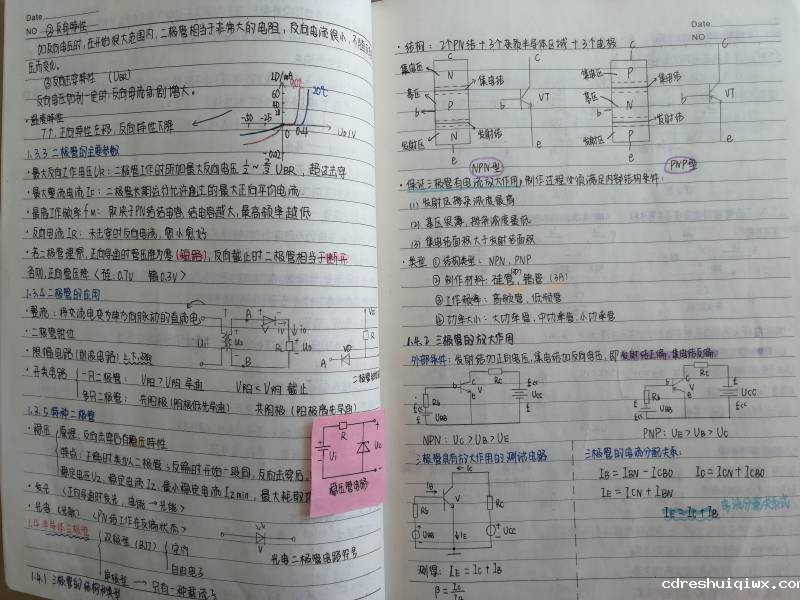 Date
NO
② 反向特性
加反向电压时,在开始很大范围内,二极管相当于非常大的电阻,反向电流很小,不随反向
压而变化。
③ 反向击穿特性 (UBR)
反向电压加到一定时,反向电流急剧增大。
·温度特性
T↑,正向特性左移,反向特性下降
ID/mA
60
40
20
-50
-25
0
0.4
-0.02
20℃
UD/V
1.3.3 二极管的主要参数
·最大反向工作电压UR:二极管工作时所加最大反向电压 1/2 ~ 2/3 UBR,超过击穿
·最大整流电流IF:二极管长期运行允许通过的最大正向平均电流.
·最高工作频率fM:取决于PN结结电容,结电容越大,最高频率越低
·反向电流IR:未击穿时反向电流,愈小愈好
·若二极管理想,正向导通时管压降为零(短路),反向截止时二极管相当于断开
否则,正向管压降<硅:0.7V 锗0.3V>
1.3.4 二极管的应用
·整流:将交流电变为单方向脉动的直流电
·二极管钳位
·限幅电路(削波电路)
·开关电路
一只二极管: V阳>V阴 导通 V阳<V阴 截止
多只二极管: 共阴极(阳极高先导通)
Ui
T
A
B
Io
RL
Uo
A
VD
R
1.3.5 特种二极管
·稳压
原理:反向击穿后有稳压特性
稳定电压UZ,稳定电流IZ,最小稳定电流IZmin,最大耗散功
Ui
R
UZ
稳压管电路
·发光(正向导通时发光,电能→光能)
·光电(光敏)<PN结工作在反偏状态>
光电二极管电路符号
双极性(BJT)
空穴
自由电子
单极性
只有一种载流子
1.4.1 三极管的结构和类型
Date
NO
·结构: 2个PN结+3个杂质半导体区域+3个电极
C
集电区
N
集电结
基区
P
b
发射区
N
发射结
e
NPN型
c
b
VT
e
C
集电区
P
集电结
基区
N
b
发射区
P
发射结
e
PNP型
c
b
VT
e
·保证三极管有电流放大作用,制作过程必须满足内部结构条件:
(1) 发射区掺杂浓度最高
(2) 基区很薄,掺杂浓度最低
(3) 集电结面积大于发射结面积
·类型 ① 结构类型: NPN、PNP
② 制作材料:硅管、锗管(3A)
③ 工作频率:高频管,低频管
④ 功率大小:大功率管,中功率管,小功率管
1.4.2 三极管的放大作用
外部条件:发射结加正向电压,集电结加反向电压,即发射结正偏,集电结反偏
Rb
UBB
b
c
e
V
RC
UCC
NPN: UC>UB>UE
Rb
UBB
b
c
e
V
RC
UCC
PNP: UE>UB>UC
三极管具有放大作用的测试电路
IB
IC
Rb
V
RC
UBB
IE
UCC
测得: IE=IC+IB
三极管的电流分配关系:
IB=IBN-ICBO IC=ICN+ICBO
IE=ICN+IBN
IE=IC+IB
电流分配关系式
cdreshuiqiwx.com